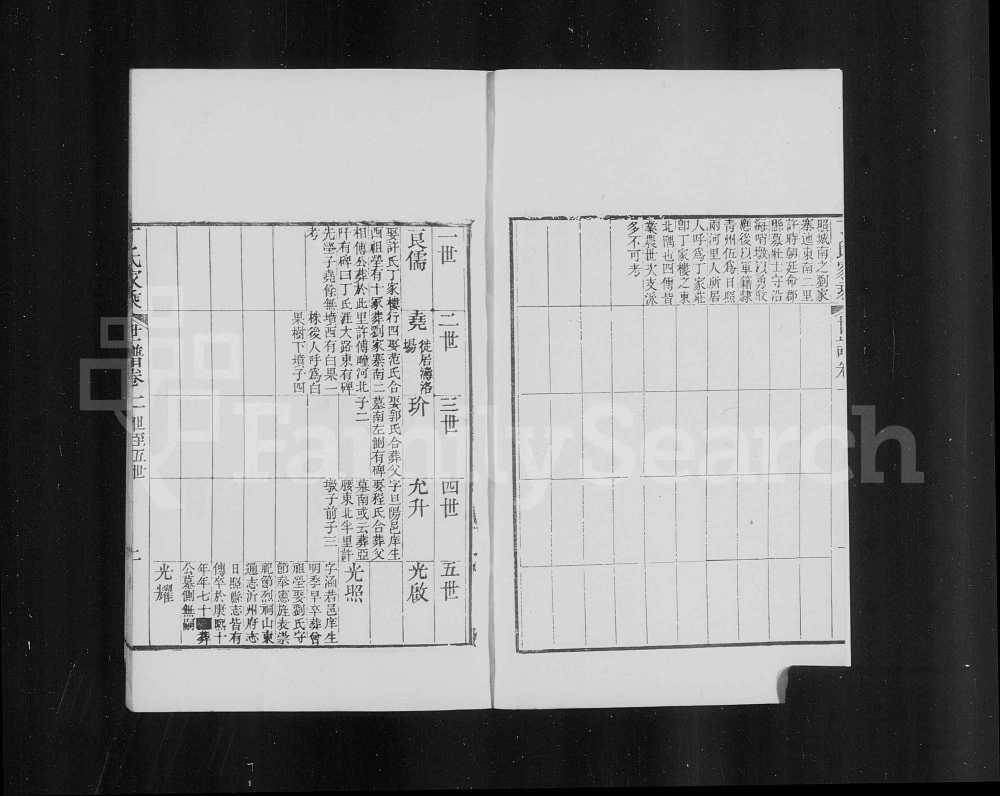 照城南之劉家
寨迤東南二里
許時朝廷命郡
縣募壯士守浩
海哨墩以勇敢
應後以軍籍隸
青州伍爲日照
兩河里人所居
人呼爲丁家莊
卽丁家樓之東
北隅也四傳皆
業農世次支派
多不可考
一世
二世
三世
四世
五世
良儒
娶許氏丁家樓
西祖塋有十冢
相傳公葬於此
阡有碑曰丁氏
先塋子堯餘無
考
堯
徙居濤洛
場
行四娶范氏合
葬劉家寨南二
里許傅疃河北
涯大路東有碑
墳西有白果一
株後人呼爲白
果樹下墳子四
玠
娶郭氏合葬父
墓南左側有碑
子二
允升
字旦陽邑庠生
娶程氏合葬父
墓南或云葬亞
腰東北半里許
墩子前子三
光啟
光照
字涵若邑庠生
明季早卒葬曾
祖塋娶劉氏守
節奉憲旌表崇
祀節烈祠山東
通志沂州府志
日照縣志皆有
傳卒於康熙十
年年七十葬
公墓側無嗣
光耀
氏家乘
世譜卷一
世至五世
FamilySearch